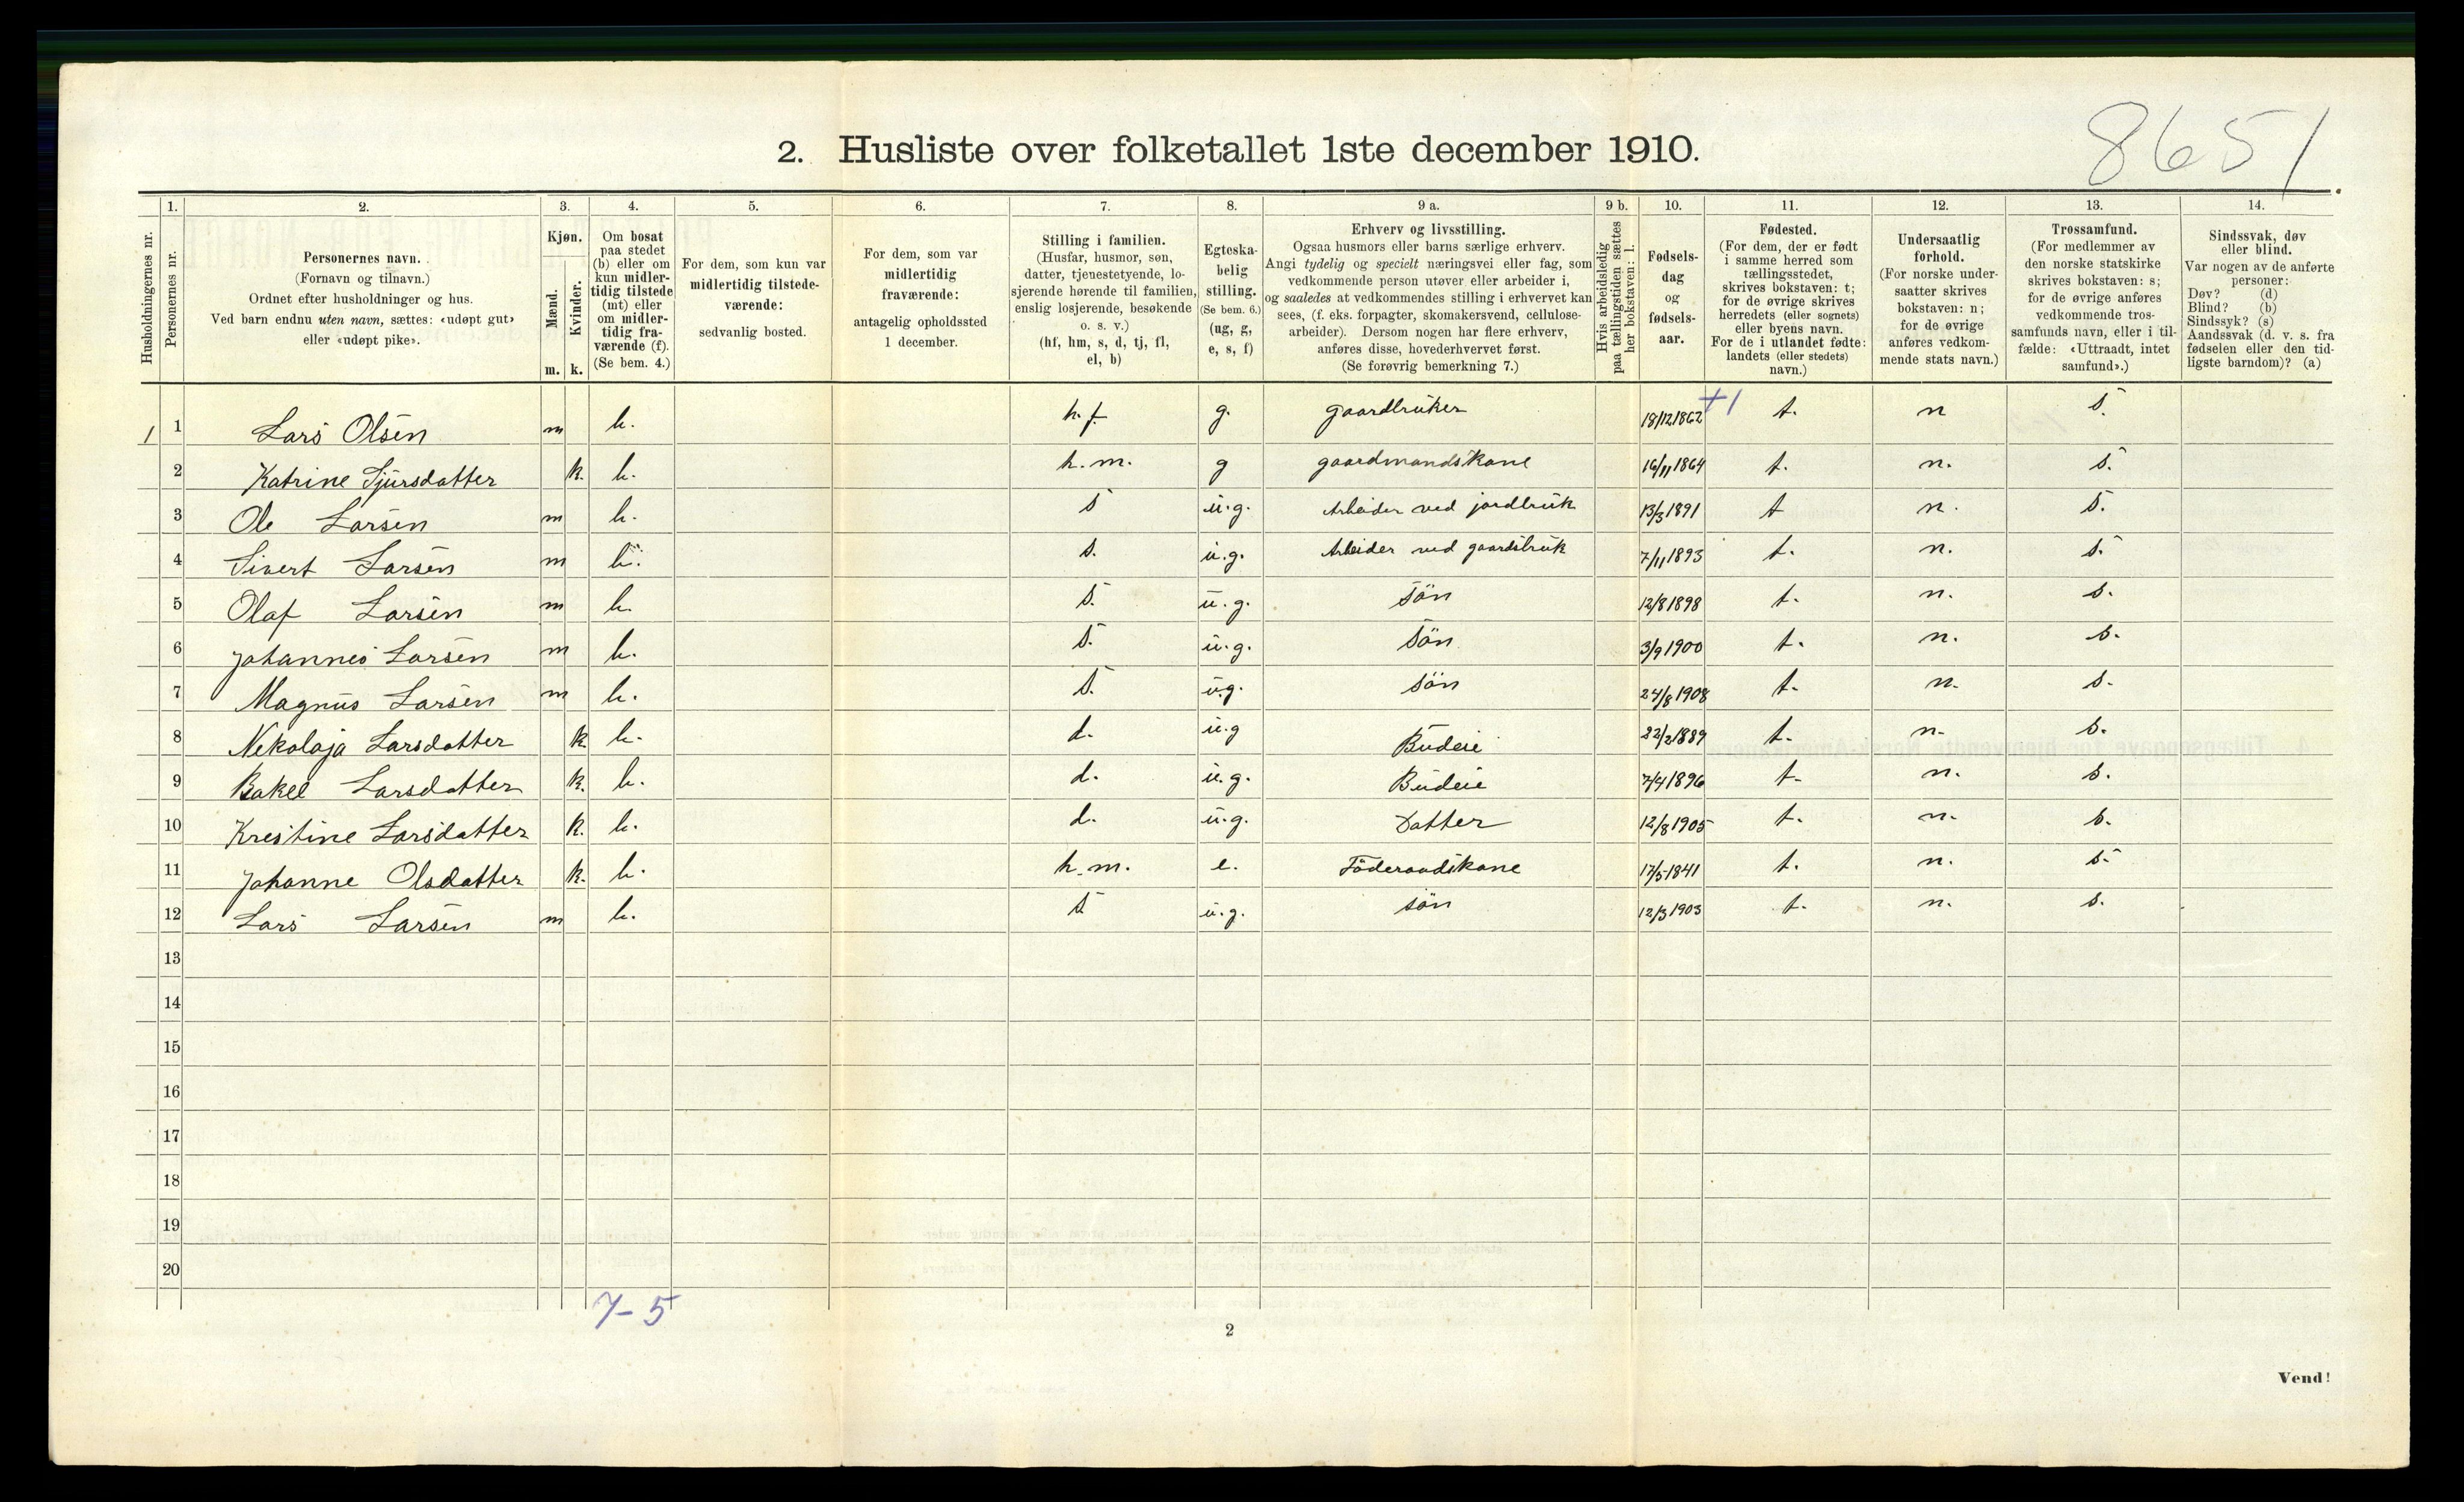 8651
2. Husliste over folketallet 1ste december 1910.
Husholdningernes nr.
1. Personernes nr.
2. Personernes navn.
(Fornavn og tilnavn.)
Ordnet efter husholdninger og hus.
Ved barn endnu uten navn, sættes: «udøpt gut»
eller «udøpt pike».
3. Kjøn.
Mænd. m.
Kvinder. k.
4. Om bosat
paa stedet
(b) eller om
kun midler-
tidig tilstede
(mt) eller
om midler-
tidig fra-
værende (f).
(Se bem. 4.)
5. For dem, som kun var
midlertidig tilstede-
værende:
sedvanlig bosted.
6. For dem, som var
midlertidig
fraværende:
antagelig opholdssted
1 december.
7. Stilling i familien.
(Husfar, husmor, søn,
datter, tjenestetyende, lo-
sjerende hørende til familien,
enslig losjerende, besøkende
o. s. v.)
(hf, hm, s, d, tj, fl,
el, b)
8. Egteska-
belig
stilling.
(Se bem. 6.)
(ug, g,
e, s, f)
9 a. Erhverv og livsstilling.
Ogsaa husmors eller barns særlige erhverv.
Angi tydelig og specielt næringsvei eller fag, som
vedkommende person utøver eller arbeider i,
og saaledes at vedkommendes stilling i erhvervet kan
sees, (f. eks. forpagter, skomakersvend, cellulose-
arbeider). Dersom nogen har flere erhverv,
anføres disse, hovederhvervet først.
(Se forøvrig bemerkning 7.)
9 b. Hvis arbeidsledig
paa tællingstiden sættes
her bokstaven: l.
10. Fødsels-
dag
og
fødsels-
aar.
11. Fødested.
(For dem, der er født
i samme herred som
tællingsstedet,
skrives bokstaven: t;
for de øvrige skrives
herredets (eller sognets)
eller byens navn.
For de i utlandet fødte:
landets (eller stedets)
navn.)
12. Undersaatlig
forhold.
(For norske under-
saatter skrives
bokstaven: n;
for de øvrige
anføres vedkom-
mende stats navn.)
13. Trossamfund.
(For medlemmer av
den norske statskirke
skrives bokstaven: s;
for de øvrige anføres
vedkommende tros-
samfunds navn, eller i til-
fælde: «Uttraadt, intet
samfund».)
14. Sindssvak, døv
eller blind.
Var nogen av de anførte
personer:
Døv? (d)
Blind? (b)
Sindssyk? (s)
Aandssvak (d. v. s. fra
fødselen eller den tid-
ligste barndom)? (a)
1 1 Lars Olsen m b. h.f. g. gaardbruker 18/12 1862 +1 t. n s.
2 Katrine Sjursdatter k. b. h.m. g gaardmandskone 16/11 1864 t. n. s.
3 Ole Larsen m b. s u.g. Arbeider ved jordbruk 13/3 1891 t n. s.
4 Sivert Larsen m b. s. u.g. Arbeider ved gaardsbruk 7/11 1893 t. n. s.
5 Olaf Larsen m b. s. u.g. sön 12/8 1898 t. n. s.
6 Johannes Larsen m b. s. u.g. sön 3/9 1900 t. n. s.
7 Magnus Larsen m b. s. u.g. sön 24/8 1908 t. n. s.
8 Nekolaja Larsdatter k b. d. u.g Budeie 22/2 1889 t. n. s.
9 Rakel Larsdatter k. b. d. u.g. Budeie 7/4 1896 t. n. s.
10 Krestine Larsdatter k. b. d. u.g. Datter 12/8 1905 t. n. s.
11 Johanne Olsdatter k. b. h.m. e. Föderaadskone 17/5 1841 t. n. s.
12 Lars Larsen m b. s u.g. sön 12/3 1903 t. n. s.
13
14
15
16
17
18
19
20
7-5
2
Vend!